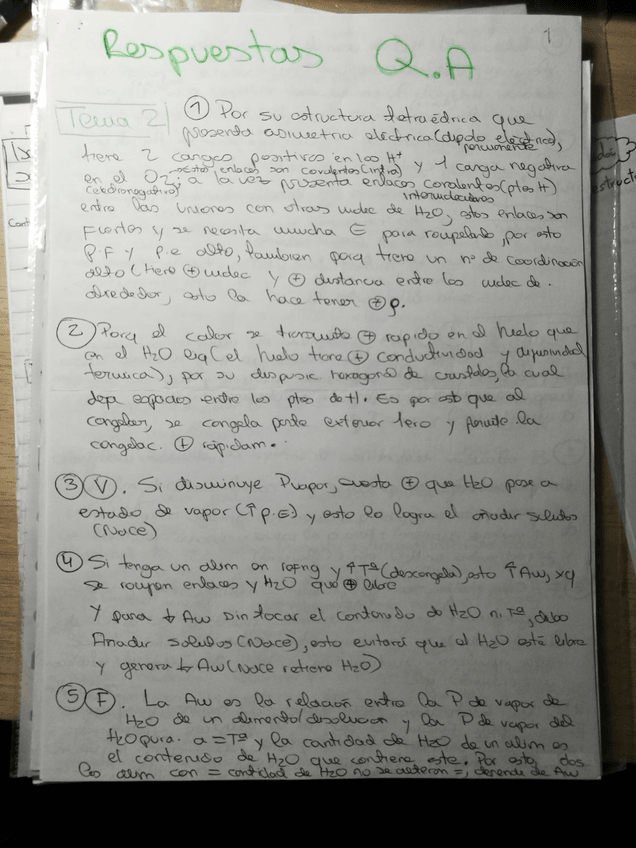 1
Respuestas Q.A
Tema 2 ① Por su estructura tetraédrica que
presenta asimetria eléctrica (dipolo eléctrico),
tiene 2 cargas positivas en los H⁺ y 1 carga negativa
en el O2; a la vez presenta enlaces covalentes (ptes H)
entre las uniones con otras molec de H2O, estos enlaces son
Fuertes y se necesita mucha E para romperlos, por esto
P.F y P.e alto, tambien porq tiene un nº de coordinación
alto (tiene ⊕ molec y ⊕ distancia entre las molec de
alrededor, esto la hace tener ⊕ρ.
② Porq el calor se transmite ⊕ rapido en el hielo que
en el H2O liq (el hielo tiene ⊕ conductividad y difusividad
termica), por su disposic hexagonal de cristales, lo cual
deja espacios entre los ptes de H. Es por esto que al
congelar, se congela parte exterior 1ero y permite la
congelac. ⊕ rápidam.
③ Ⓥ. Si disminuye Pvapor, cuesta ⊕ que H2O pase a
estado de vapor (↑ p.E) y esto lo logra el añadir solutos
(NaCl)
④ Si tenga un alim en refrig y ↑Tª (descongela), esto ↑Aw, xq
se rompen enlaces y H2O que ⊕ libre
Y para ↓ Aw sin tocar el contenido de H2O ni Tª, debo
Añadir solutos (NaCl), esto evitará que el H2O esté libre
y genera ↓ Aw (NaCl retiene H2O)
⑤ Ⓕ. La Aw es la relación entre la P de vapor de
H2O de un alimento/disolucion y la P de vapor del
H2O pura. a = Tª y la cantidad de H2O de un alim es
el contenido de H2O que contiene este. Por esto, dos
los alim con = cantidad de H2O no se alteran =, depende de Aw